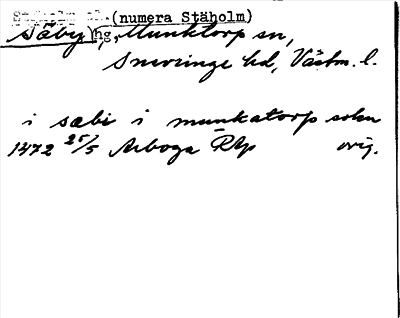 (numera Stäholm)
Säby, hg, Munktorp sn,
Snevringe hd, Västm. l.
i sæbi i munkatorp sokn
1472 25/5 Arboga RAp orig.